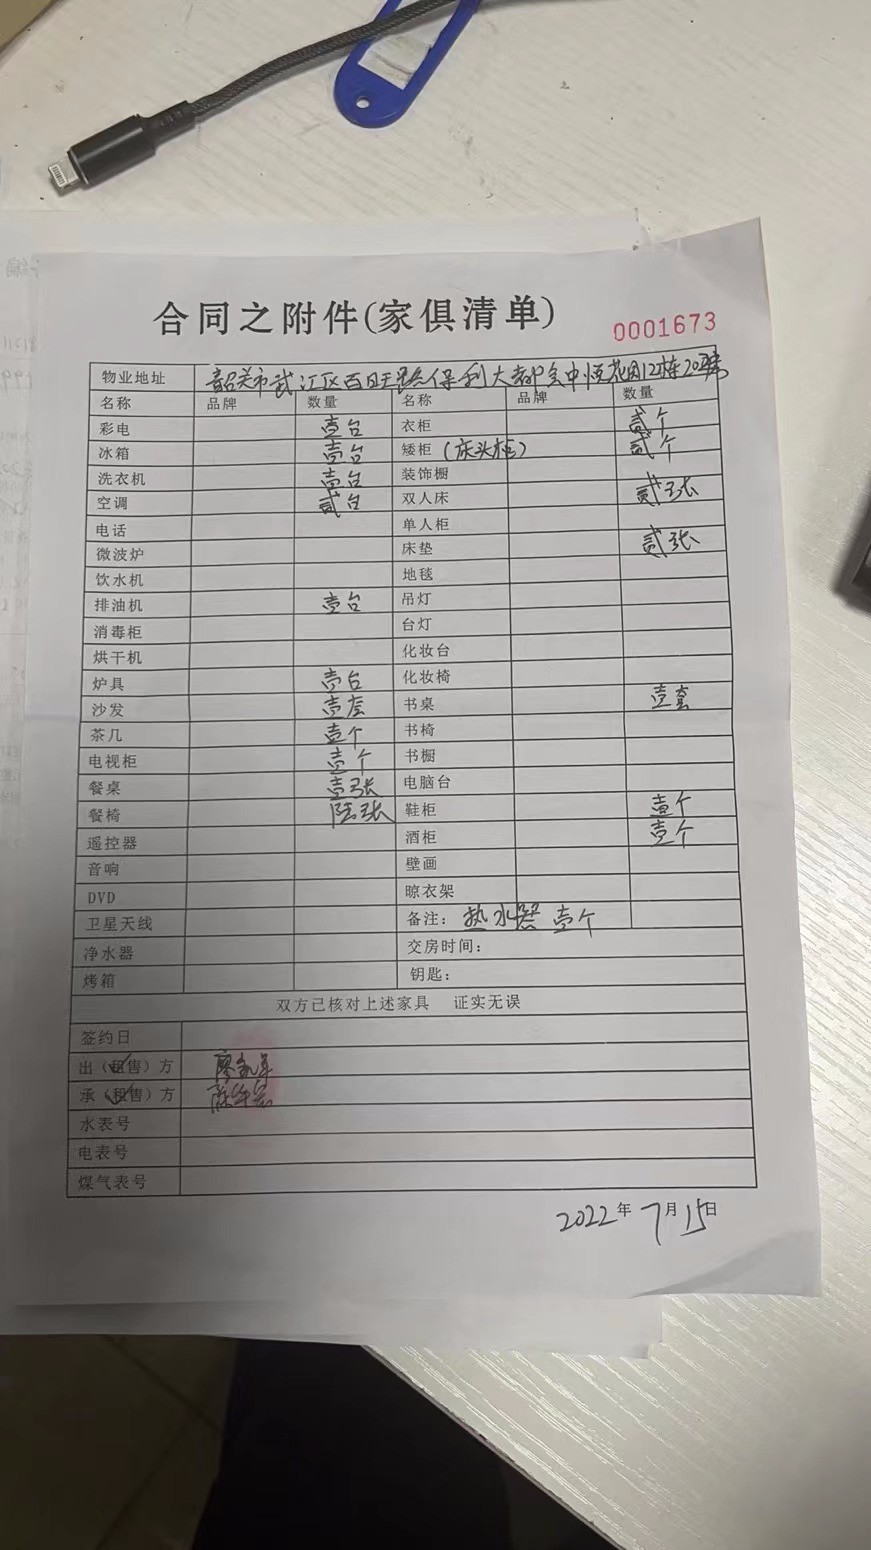 合同之附件(家俱清单)
0001673
物业地址 韶关市武江区百旺路保利大都会中悦花园12栋
名称 品牌 数量 名称 品牌 数量
彩电 壹台 衣柜 贰个
冰箱 壹台 矮柜(床头柜) 贰个
洗衣机 壹台 装饰橱
空调 贰台 双人床 贰张
电话 单人柜
微波炉 床垫 贰张
饮水机 地毯
排油机 壹台 吊灯
消毒柜 台灯
烘干机 化妆台
炉具 壹台 化妆椅
沙发 壹套 书桌 壹套
茶几 壹个 书椅
电视柜 壹个 书橱
餐桌 壹张 电脑台
餐椅 陆张 鞋柜 壹个
遥控器 酒柜 壹个
音响 壁画
DVD 晾衣架
卫星天线 备注: 热水器 壹个
净水器 交房时间:
烤箱 钥匙:
双方已核对上述家具 证实无误
签约日
出(租售)方
承(租售)方
水表号
电表号
煤气表号
2022年7月15日